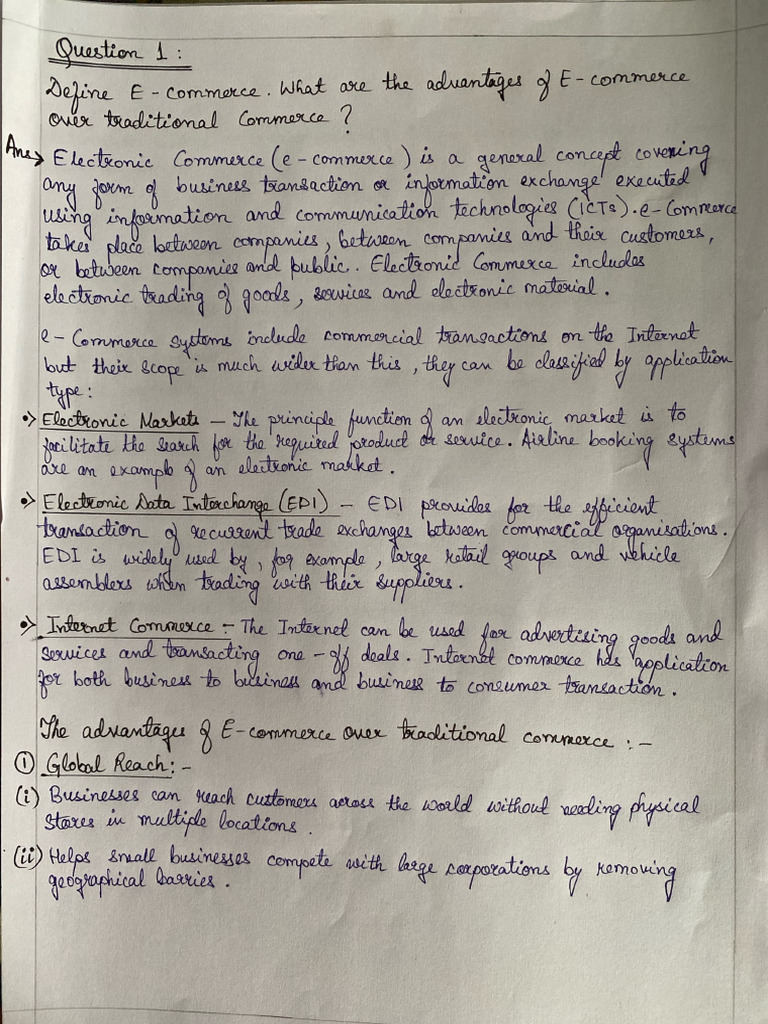 Question 1 :
Define E - commerce. What are the advantages of E - commerce
over traditional Commerce ?
Ans→ Electronic Commerce (e - commerce) is a general concept covering
any form of business transaction or information exchange executed
using information and communication technologies (ICTs). e-Commerce
takes place between companies, between companies and their customers,
or between companies and public. Electronic Commerce includes
electronic trading of goods, services and electronic material.
e - Commerce systems include commercial transactions on the Internet
but their scope is much wider than this, they can be classified by application
type :
•> Electronic Markets – The principle function of an electronic market is to
facilitate the search for the required product or service. Airline booking systems
are an example of an electronic market.
•> Electronic Data Interchange (EDI) – EDI provides for the efficient
transaction of recurrent trade exchanges between commercial organisations.
EDI is widely used by, for example, large retail groups and vehicle
assemblers when trading with their suppliers.
•> Internet Commerce :- The Internet can be used for advertising goods and
services and transacting one - off deals. Internet commerce has application
for both business to business and business to consumer transaction.
The advantages of E-commerce over traditional commerce : -
① Global Reach : -
(i) Businesses can reach customers across the world without needing physical
stores in multiple locations.
(ii) Helps small businesses compete with large corporations by removing
geographical barries.